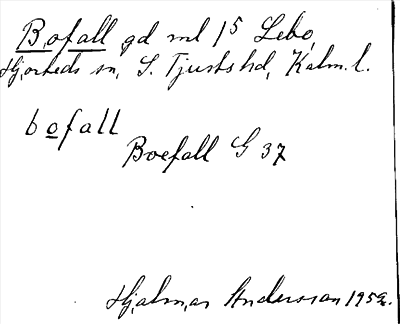 Bofall gd ml 15 Lebo,
Hjorteds sn, S. Tjusts hd, Kalm. l.
bofall
Boefall G 37
Hjalmar Andersson 1952.